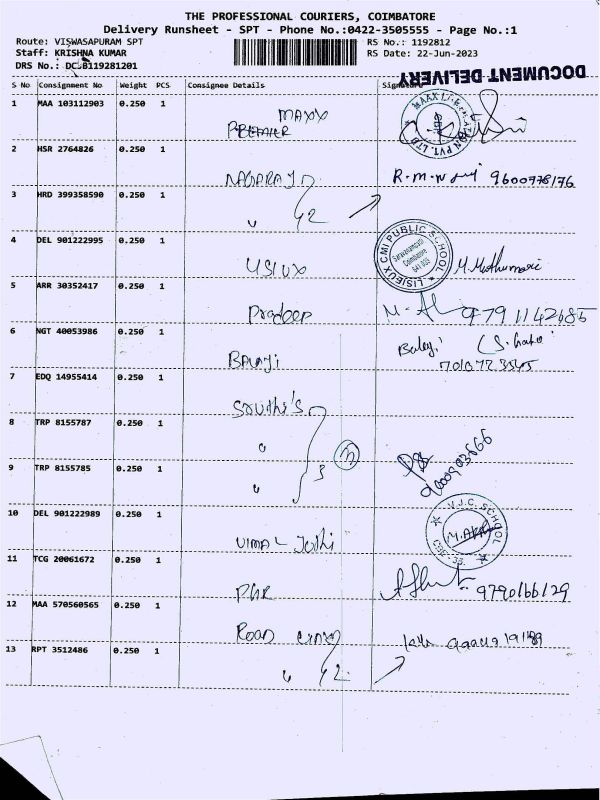 THE PROFESSIONAL COURIERS, COIMBATORE
Delivery Runsheet - SPT - Phone No.:0422-3505555 - Page No.:1
Route: VISWASAPURAM SPT
RS No.: 1192812
Staff: KRISHNA KUMAR
RS Date: 22-Jun-2023
DRS No.: DCJB119281201
DOCUMENT DELIVERY
S No Consignment No Weight PCS Consignee Details
1 MAA 103112903 0.250 1 MAXX
PREMIER
2 HSR 2764826 0.250 1
NAGARAJ R.m. 9600778176
3 HRD 399358590 0.250 1
" 2
4 DEL 901222995 0.250 1
LISIEUX CMI PUBLIC SCHOOL
Saravanampatti
Coimbatore
641 035
USIUX M.Muthumari
5 ARR 30352417 0.250 1
Pradeep 9791142685
6 NGT 40053986 0.250 1
Balaji
BALAJI
7 EDQ 14955414 0.250 1
SRUTHI'S
8 TRP 8155787 0.250 1
"
9 TRP 8155785 0.250 1
" 3
10 DEL 901222989 0.250 1
V.J.C. SCHOOL
CBE-35
VIMAL Jothi
11 TCG 20061672 0.250 1
PGR 9790166129
12 MAA 570560565 0.250 1
ROAD
13 RPT 3512486 0.250 1
" 2